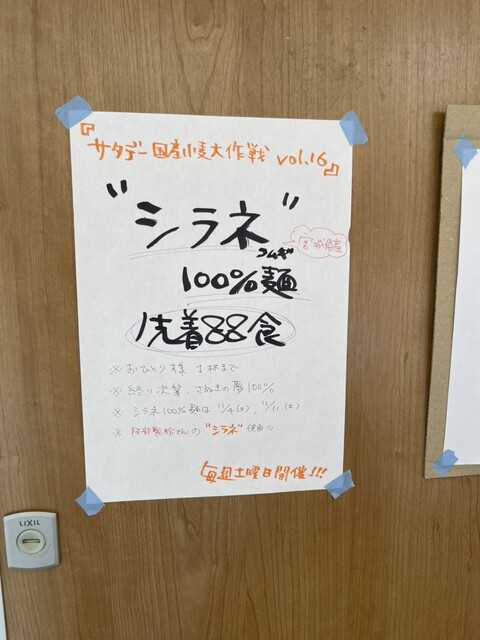 『サタデー国産小麦大作戦 vol.16』
"シラネ"
コムギ
宮城県産
100%麺
先着88食
※ おひとり様 1杯まで
※ 終り次第、さぬきの夢100%
※ シラネ100%麺は 11/4(土)、11/11(土)
※ 阿部製粉さんの "シラネ" 使用!!!
毎週土曜日開催!!!
LIXIL